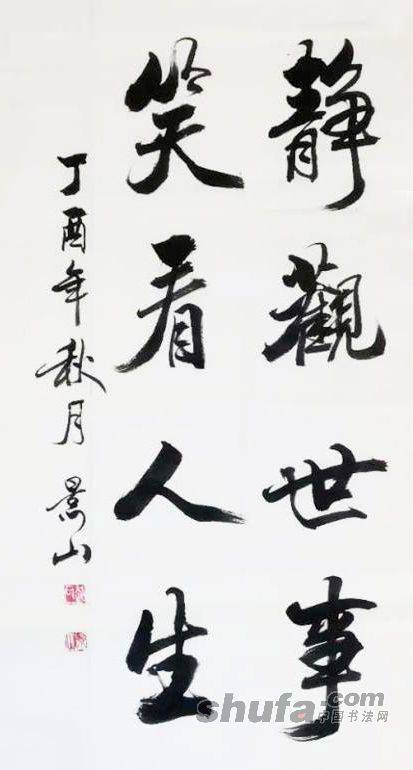 静觀世事
笑看人生
丁酉年秋月 景山
shufa.com
中国书法网